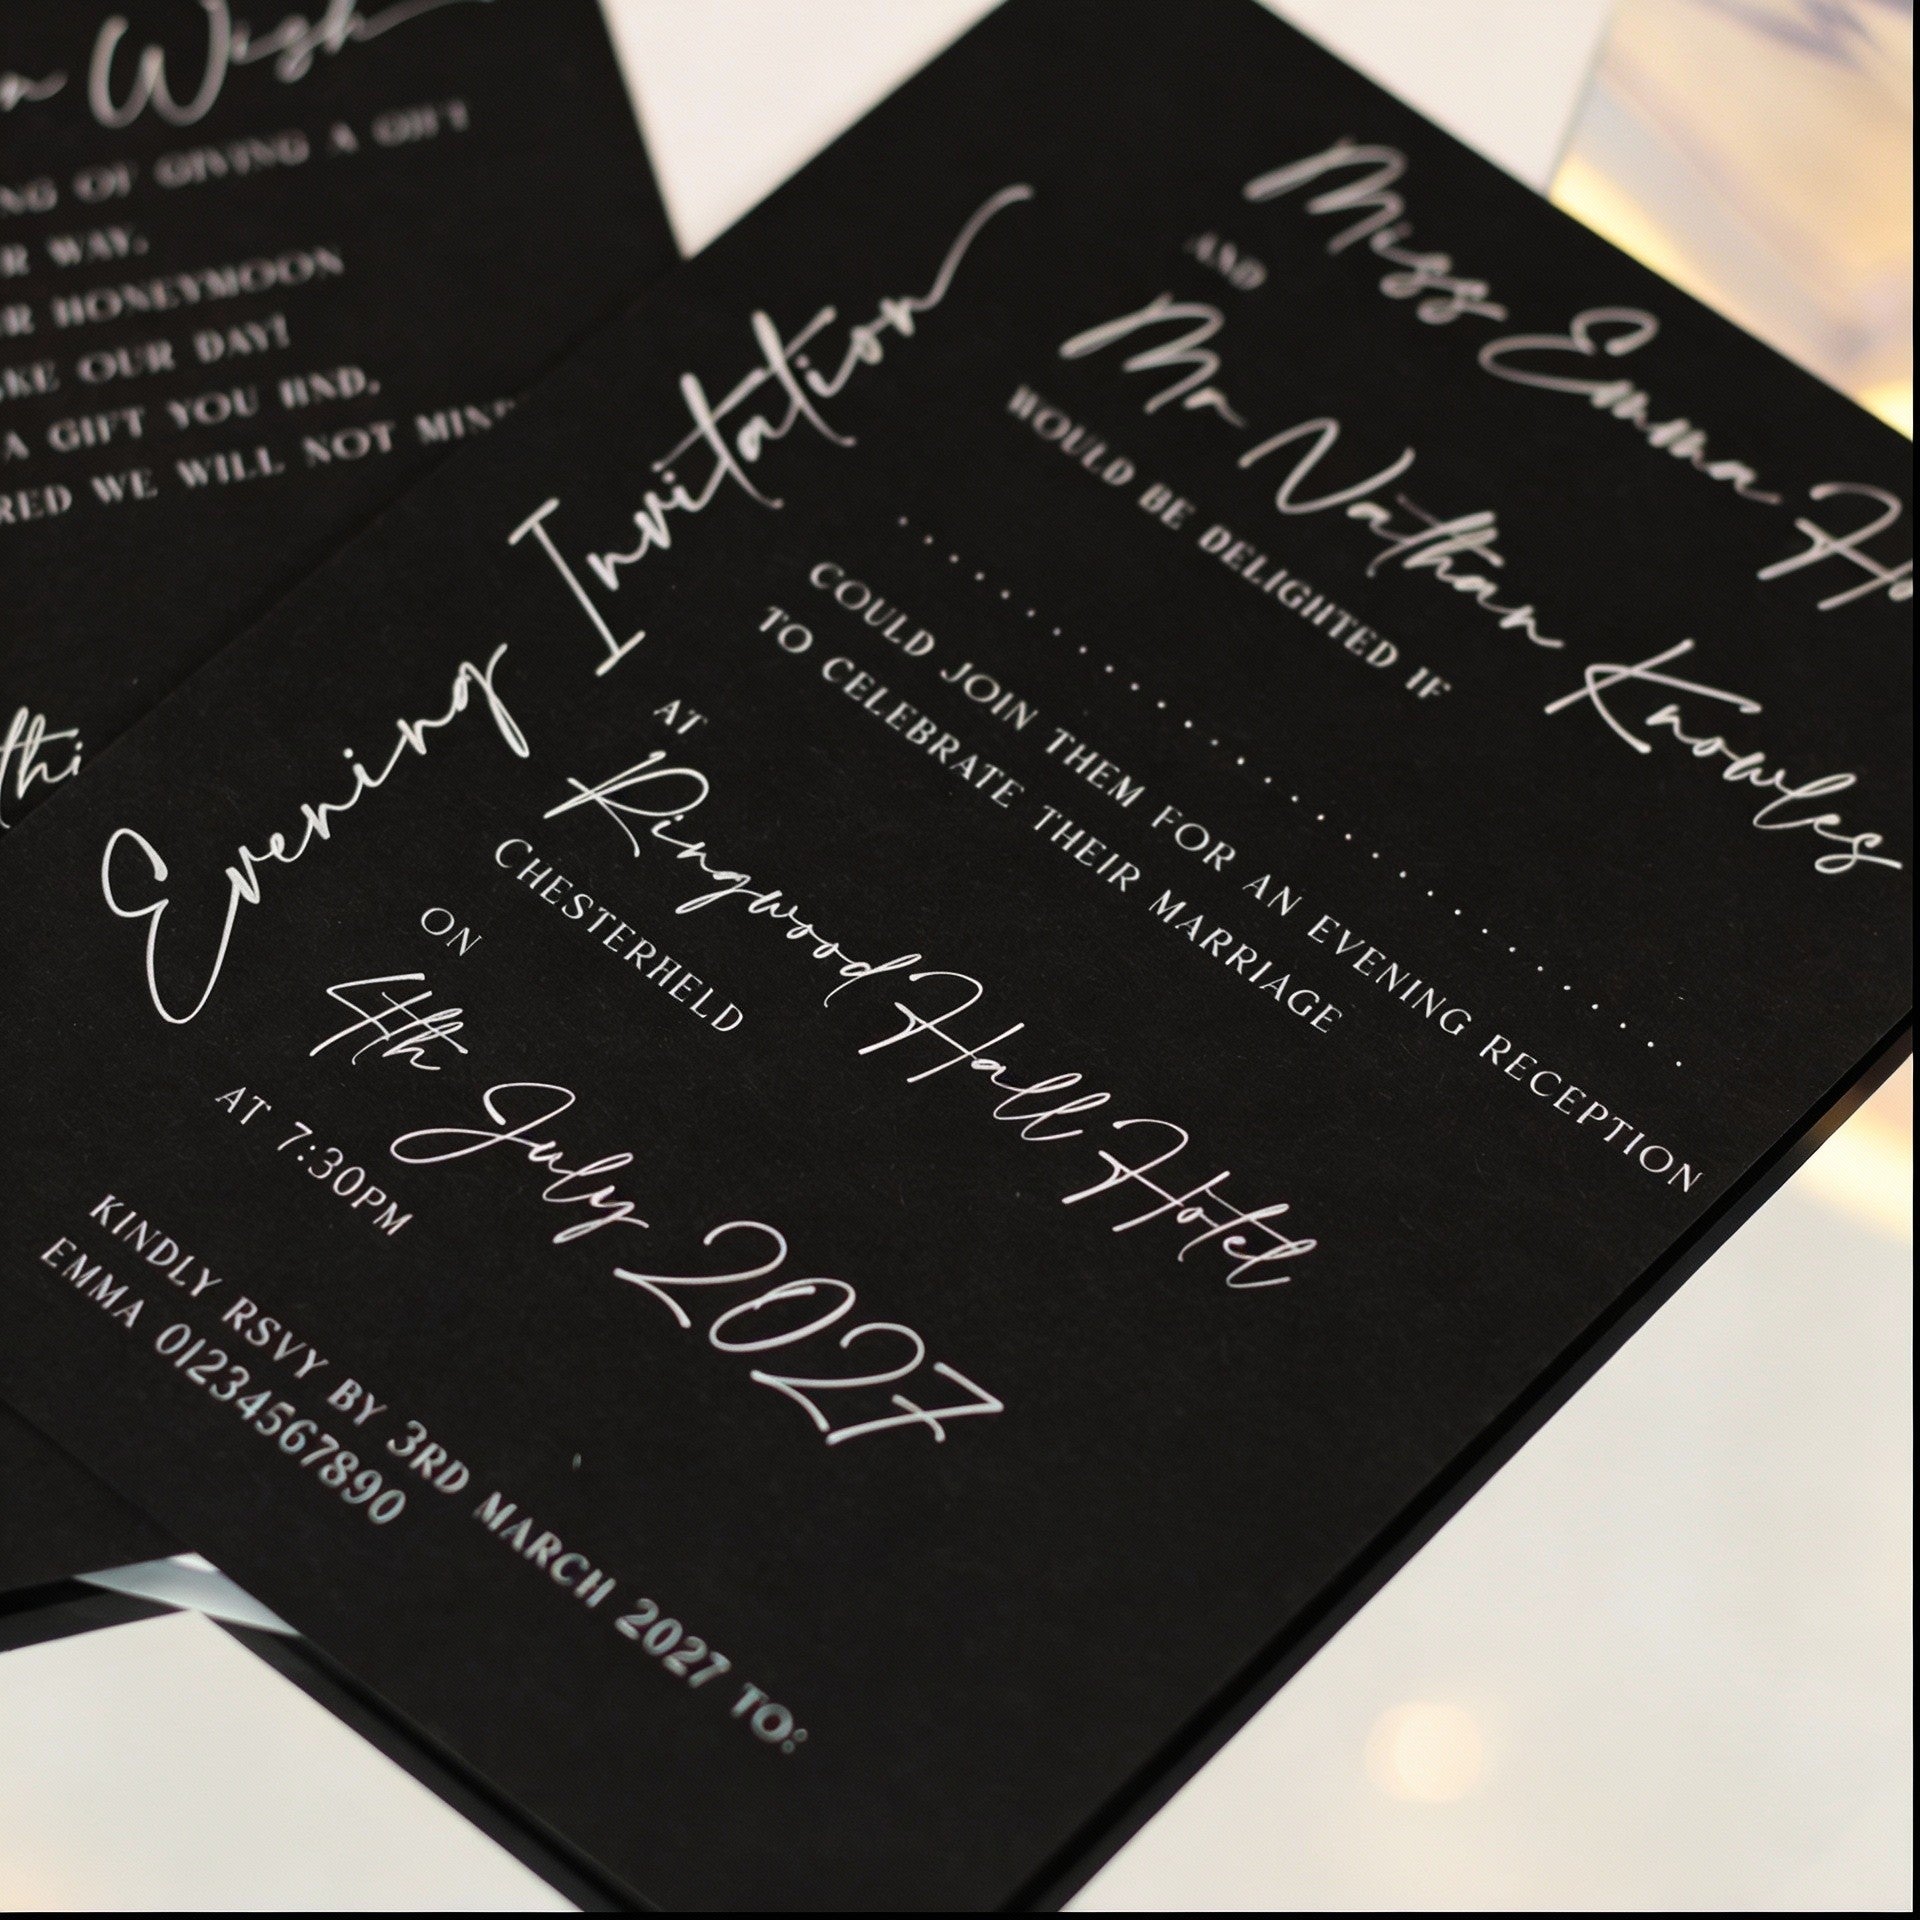 Wish
OF GIVING A GIFT
WAY,
HONEYMOON
OUR DAY!
A GIFT YOU FIND,
WE WILL NOT
Evening Invitation
Miss Emma
AND
Mr Nathan Knowles
WOULD BE DELIGHTED IF
................................
COULD JOIN THEM FOR AN EVENING RECEPTION
TO CELEBRATE THEIR MARRIAGE
AT
Ringwood Hall Hotel
CHESTERFIELD
ON
4th July 2027
AT 7:30PM
KINDLY RSVY BY 3RD MARCH 2027 TO:
EMMA 01234567890